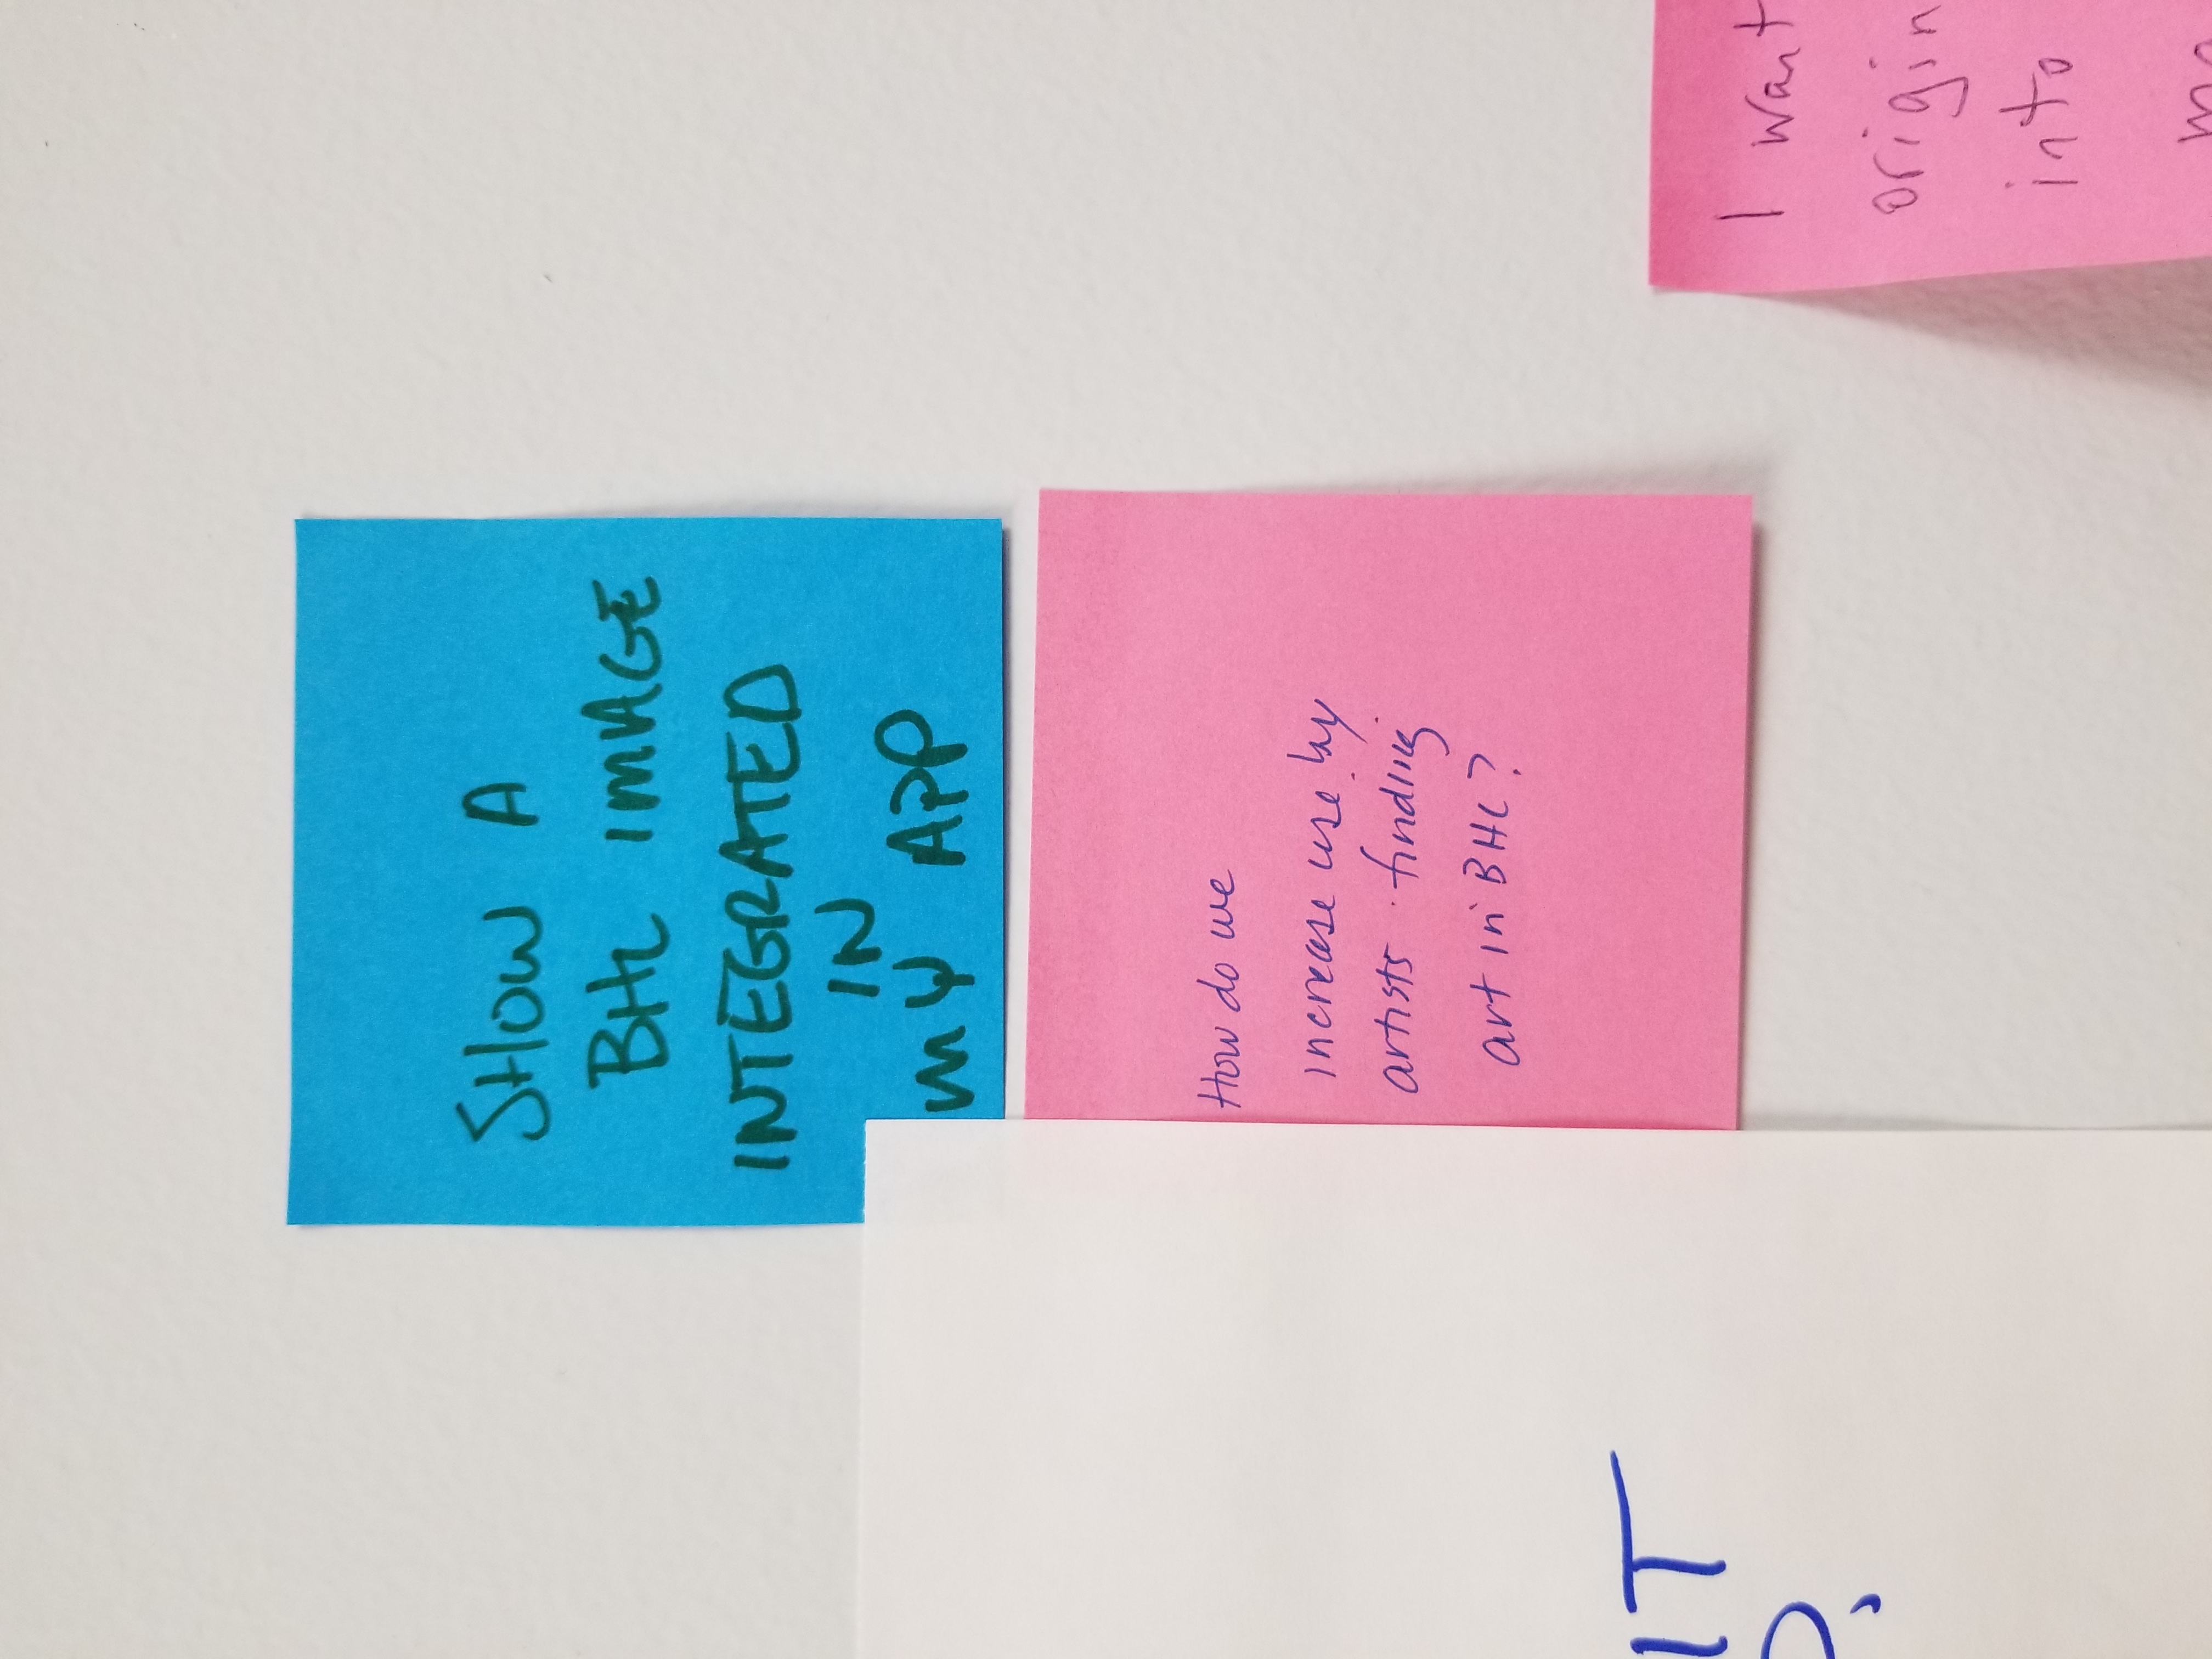 SHOW A
BHL IMAGE
INTEGRATED
IN
MY APP
How do we
increase use by
artists finding
art in BHL?
IT
I want
origin
into